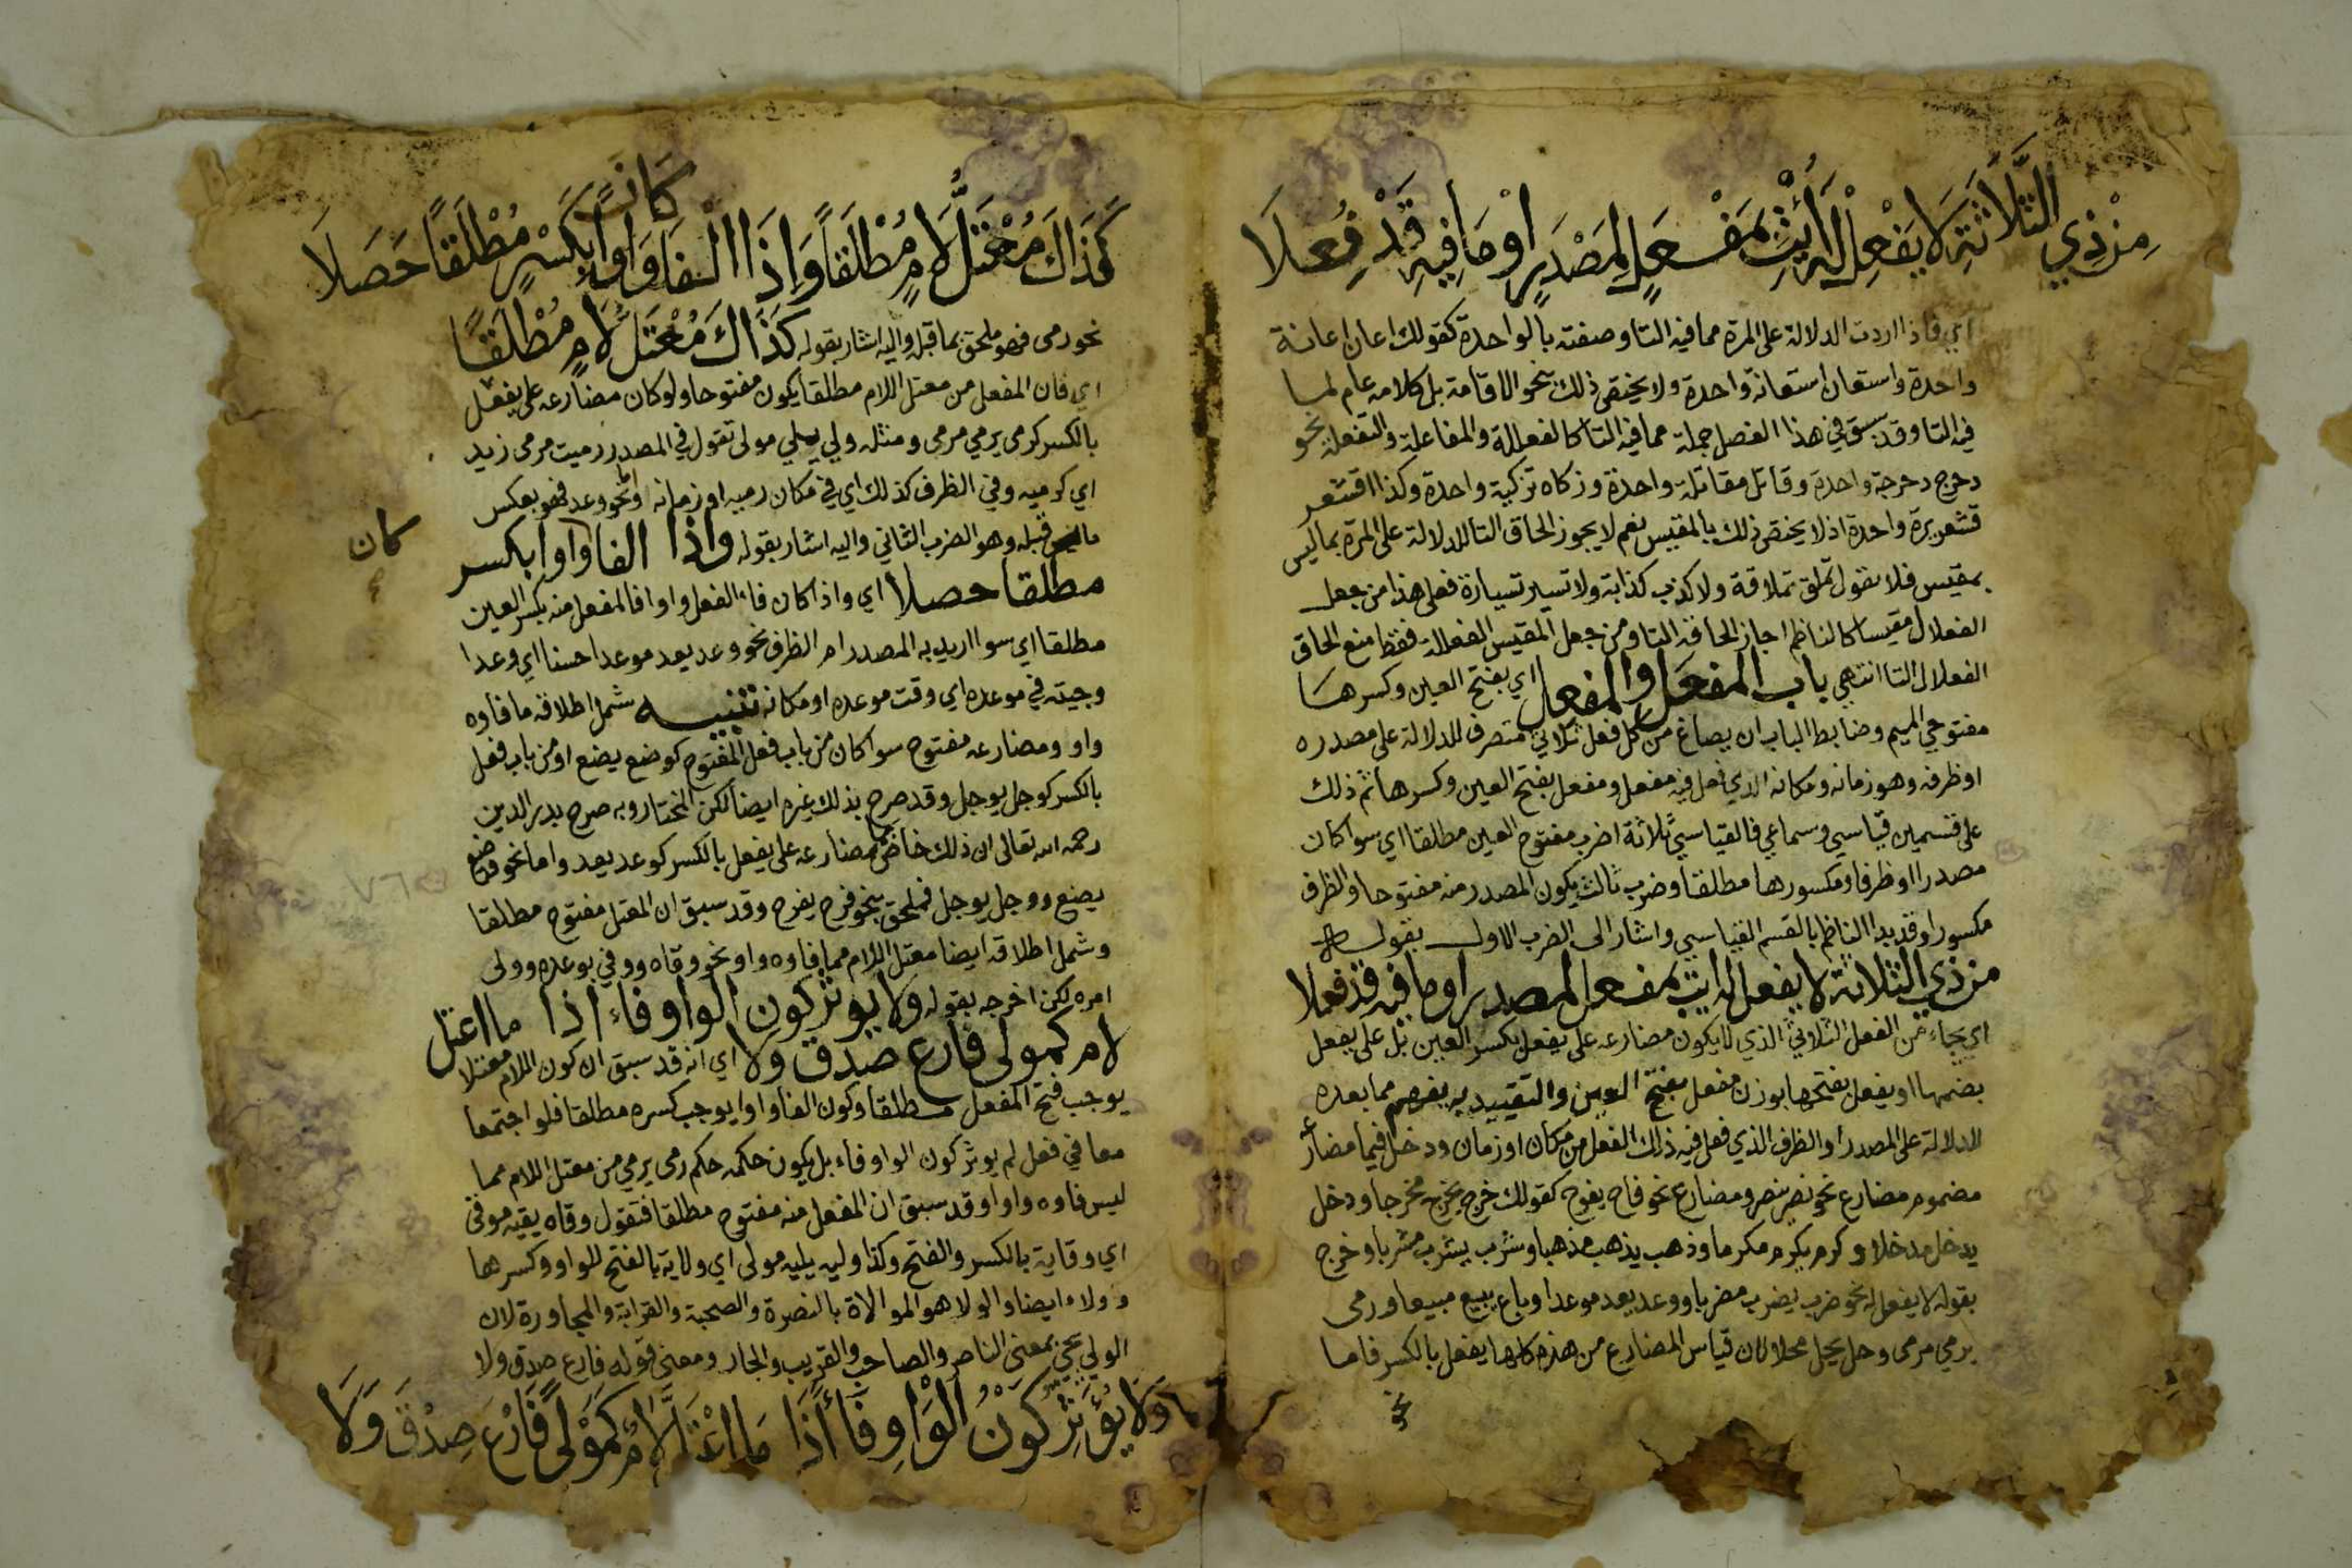 مِنْ ذِي الثَّلَاثَةِ لَا يَفْعِلْ لَهُ أْتِ بِمَفْعَلٍ لِمَصْدَرٍ اوْ مَا فِيهِ قَدْ فُعِلَا
اي فاذا اردت الدلالة على المرة مما فيه التا وصفته بالواحدة كقولك اعان اعانة
واحدة واستعان استعانة واحدة ولا يختص ذلك بنحو الاقامة بل كلامه عام لما
فيه التا وقد سبق في هذا الفصل جملة مما فيه التا كالفعللة والمفاعلة والتفعلة نحو
دحرج دحرجة واحدة وقاتل مقاتلة واحدة وزكاه تزكية واحدة وكذا اقشعر
قشعريرة واحدة اذ لا يختص ذلك بالمقيس نعم لا يجوز الحاق التا للدلالة على المرة بما ليس
بمقيس فلا تقول تملق تملاقة ولا كذب كذابة ولا تسير تسيارة فعلى هذا من جعل
الفعلال مقيسا كالناظم اجاز الحاقه التا ومن جعل المقيس الفعللة فقط منع الحاق
الفعلال التا انتهى باب المفعَل والمفعِل اي بفتح العين وكسرها
مفتوحي الميم وضابط الباب ان يصاغ من كل فعل ثلاثي متصرف للدلالة على مصدره
او ظرفه وهو زمانه ومكانه الذي فعل فيه مفعل ومفعل بفتح العين وكسرها ثم ذلك
على قسمين قياسي وسماعي فالقياسي ثلاثة اضرب مفتوح العين مطلقا اي سوا كان
مصدرا او ظرفا ومكسورها مطلقا وضرب ثالث يكون المصدر منه مفتوحا والظرف
مكسورا وقد بدا الناظم بالقسم القياسي واشار الى الضرب الاول بقوله
من ذي الثلاثة لا يفعل له ايت بمفعل لمصدر او ما فيه قد فعلا
اي يجاء من الفعل الثلاثي الذي لا يكون مضارعه على يفعل بكسر العين بل على يفعل
بضمها او يفعل بفتحها بوزن مفعل بفتح العين والتقييد به يفهم مما بعده
للدلالة على المصدر او الظرف الذي فعل فيه ذلك الفعل من مكان او زمان ودخل فيما مضارعه
مضموم مضارع نحو نصر ينصر ومضارع نحو فاح يفوح كقولك خرج يخرج مخرجا ودخل
يدخل مدخلا وكرم يكرم مكرما وذهب يذهب مذهبا وشرب يشرب مشربا وخرج
بقوله لا يفعل له نحو ضرب يضرب مضربا ووعد يعد موعدا وباع يبيع مبيعا ورمى
يرمي مرمى وحل يحل محلا لان قياس المضارع من هذه كلها يفعل بالكسر فاما
نحو
كَذَاكَ مُعْتَلُّ لَامٍ مُطْلَقًا وَإِذَا الْفَا كَانَ وَاوًا بِكَسْرٍ مُطْلَقًا حَصَلَا
نحو رمى فهو ملحق بما قبله واليه اشار بقوله كَذَاكَ مُعْتَلُّ لَامٍ مُطْلَقًا
اي فان المفعل من معتل اللام مطلقا يكون مفتوحا ولو كان مضارعه على يفعل
بالكسر كرمى يرمي مرمى ومثله ولي يلي مولى تقول في المصدر رميت مرمى زيد
اي كرميه وفي الظرف كذلك اي في مكان رميه او زمانه واما نحو وعد فهو بعكس
ما قبله وهو الضرب الثاني واليه اشار بقوله واذا الفا واوا بكسر
كان
مطلقا حصلا اي واذا كان فاء الفعل واوا فالمفعل منه بكسر العين
مطلقا اي سوا اريد به المصدر ام الظرف نحو وعد يعد موعدا حسنا اي وعدا
وجيته في موعده اي وقت موعده او مكانه تنبيه شمل اطلاقه ما فاوه
واو ومضارعه مفتوح سوا كان من باب فعل المفتوح كوضع يضع او من باب فعل
بالكسر كوجل يوجل وقد صرح بذلك غيره ايضا لكن المختار وبه صرح بدر الدين
رحمه الله تعالى ان ذلك خاص بما مضارعه على يفعل بالكسر كوعد يعد واما نحو وضع
يضع ووجل يوجل فملحق بنحو فرح يفرح وقد سبق ان المفعل مفتوح مطلقا
وشمل اطلاقه ايضا معتل اللام مما فاوه واو نحو وقاه ووفي بوعده وولى
امره لكن اخرجه بقوله ولا يوثر كون الواو فاء اذا ما اعتل
لام كمولى فارع صدق ولا اي انه قد سبق ان كون اللام معتلا
يوجب فتح المفعل مطلقا وكون الفا واوا يوجب كسره مطلقا فلو اجتمعا
معا في فعل لم يوثر كون الواو فاء بل يكون حكمه حكم رمى يرمي من معتل اللام مما
ليس فاوه واوا وقد سبق ان المفعل منه مفتوح مطلقا فتقول وقاه يقيه موقى
اي وقاية بالكسر والفتح وكذا وليه يليه مولى اي ولاية بالفتح للواو وكسرها
وولاء ايضا والولا هو الموالاة بالنصرة والصحبة والقرابة والمجاورة لان
الولي يجي بمعنى الناصر والصاحب والقريب والجار ومعنى قوله فارع صدق ولا
وَلَا يُؤَثِّرُ كَوْنُ الْوَاوِ فَاءً إِذَا مَا اعْتَلَّ لَامٌ كَمَوْلًى فَارْعَ صِدْقَ وَلَا